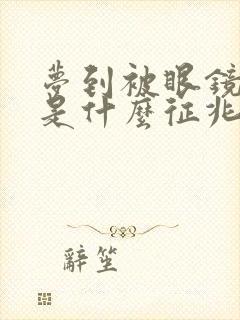 夢到被眼鏡
是什麼征兆
辭笙